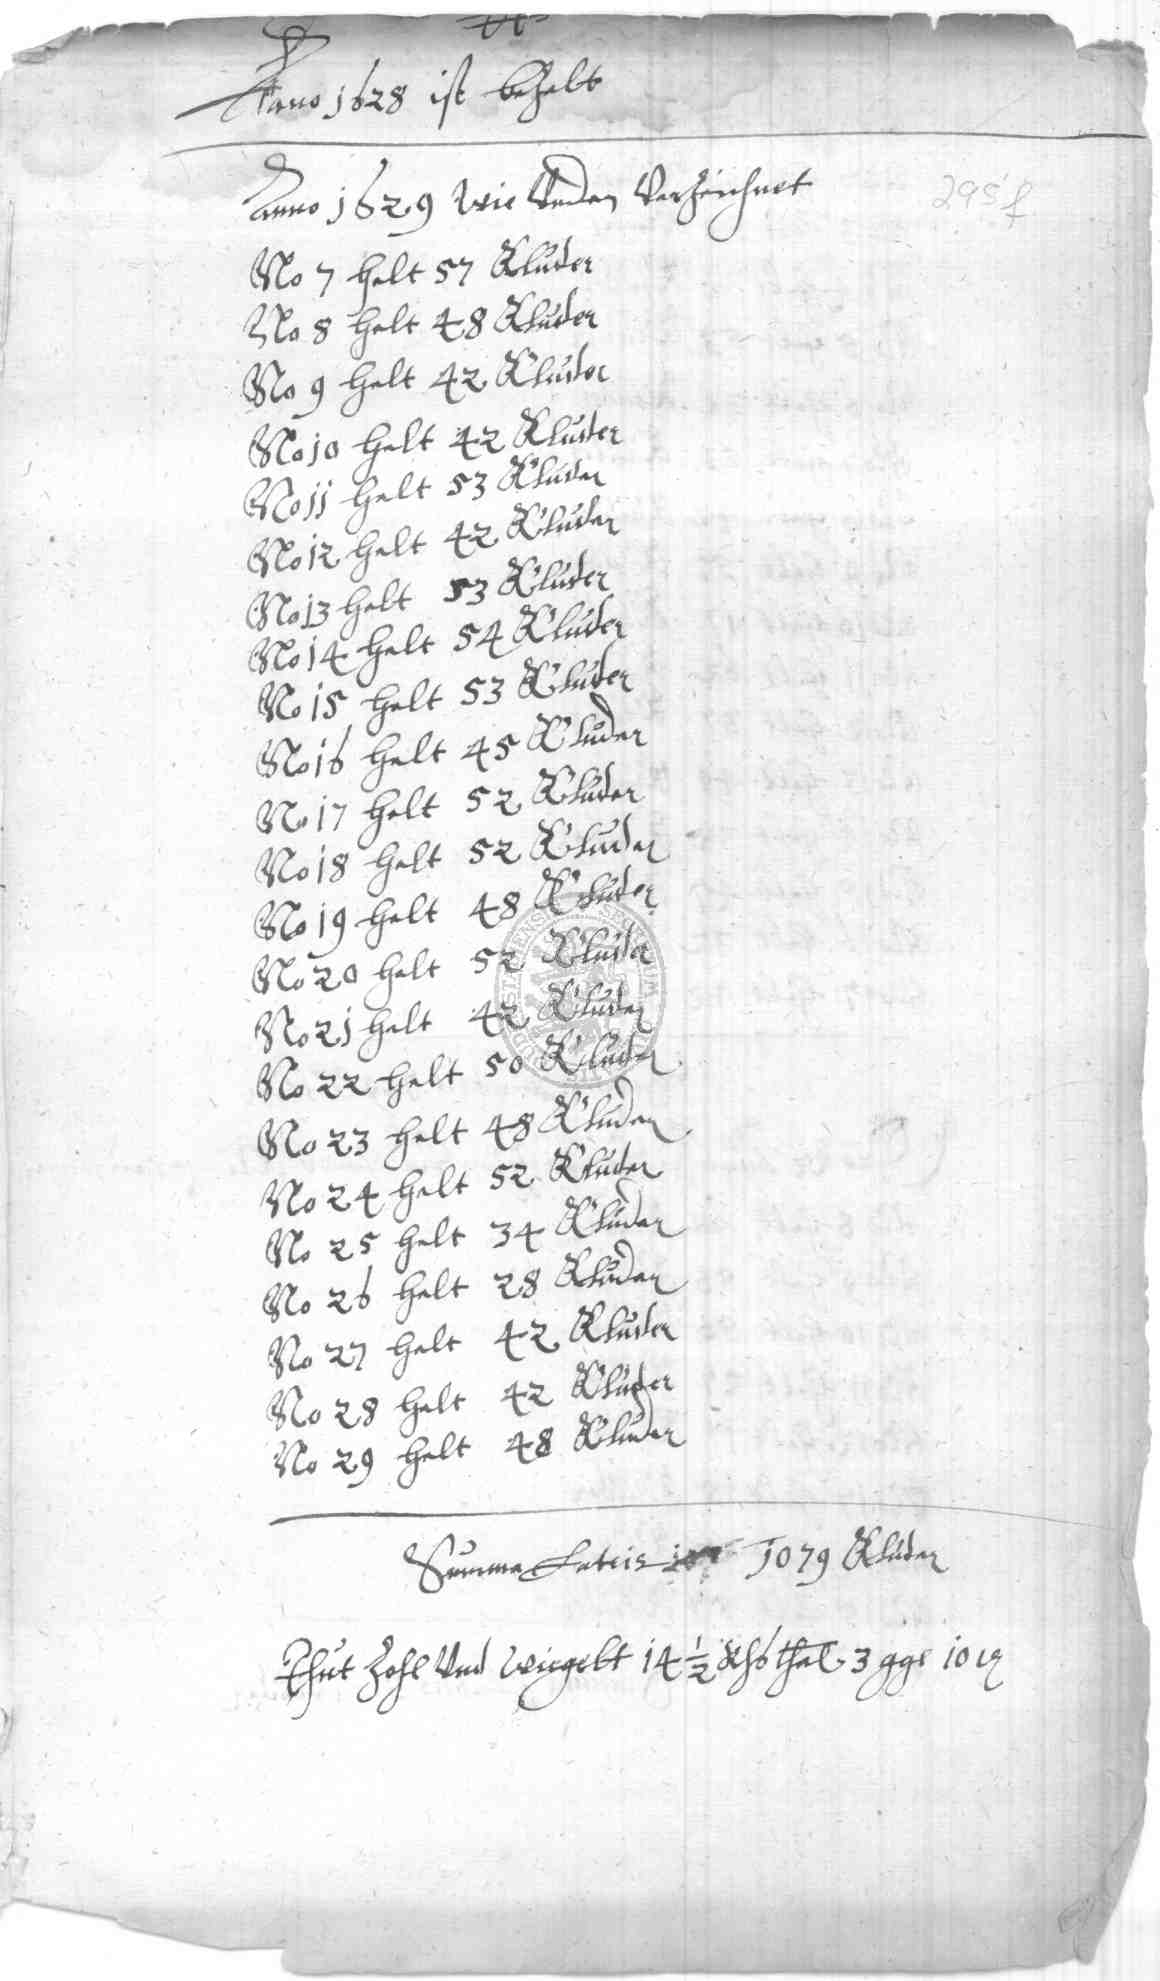 Anno 1628 ist bezalt
Anno 1629 wie Unden Verzeichnet
295 f
No 7 helt 57 Kluder
No 8 helt 48 Kluder
No 9 helt 42 Kluder
No 10 helt 42 Kluder
No 11 helt 53 Kluder
No 12 helt 42 Kluder
No 13 helt 53 Kluder
No 14 helt 54 Kluder
No 15 helt 53 Kluder
No 16 helt 45 Kluder
No 17 helt 52 Kluder
No 18 helt 52 Kluder
No 19 helt 48 Kluder
No 20 helt 52 Kluder
No 21 helt 42 Kluder
No 22 helt 50 Kluder
No 23 helt 48 Kluder
No 24 helt 52 Kluder
No 25 helt 34 Kluder
No 26 helt 28 Kluder
No 27 helt 42 Kluder
No 28 helt 42 Kluder
No 29 helt 48 Kluder
Summa Lateris 1079 Kluder
Thut Zohl Und wiegelt 14 1/2 thal 3 ggl 10